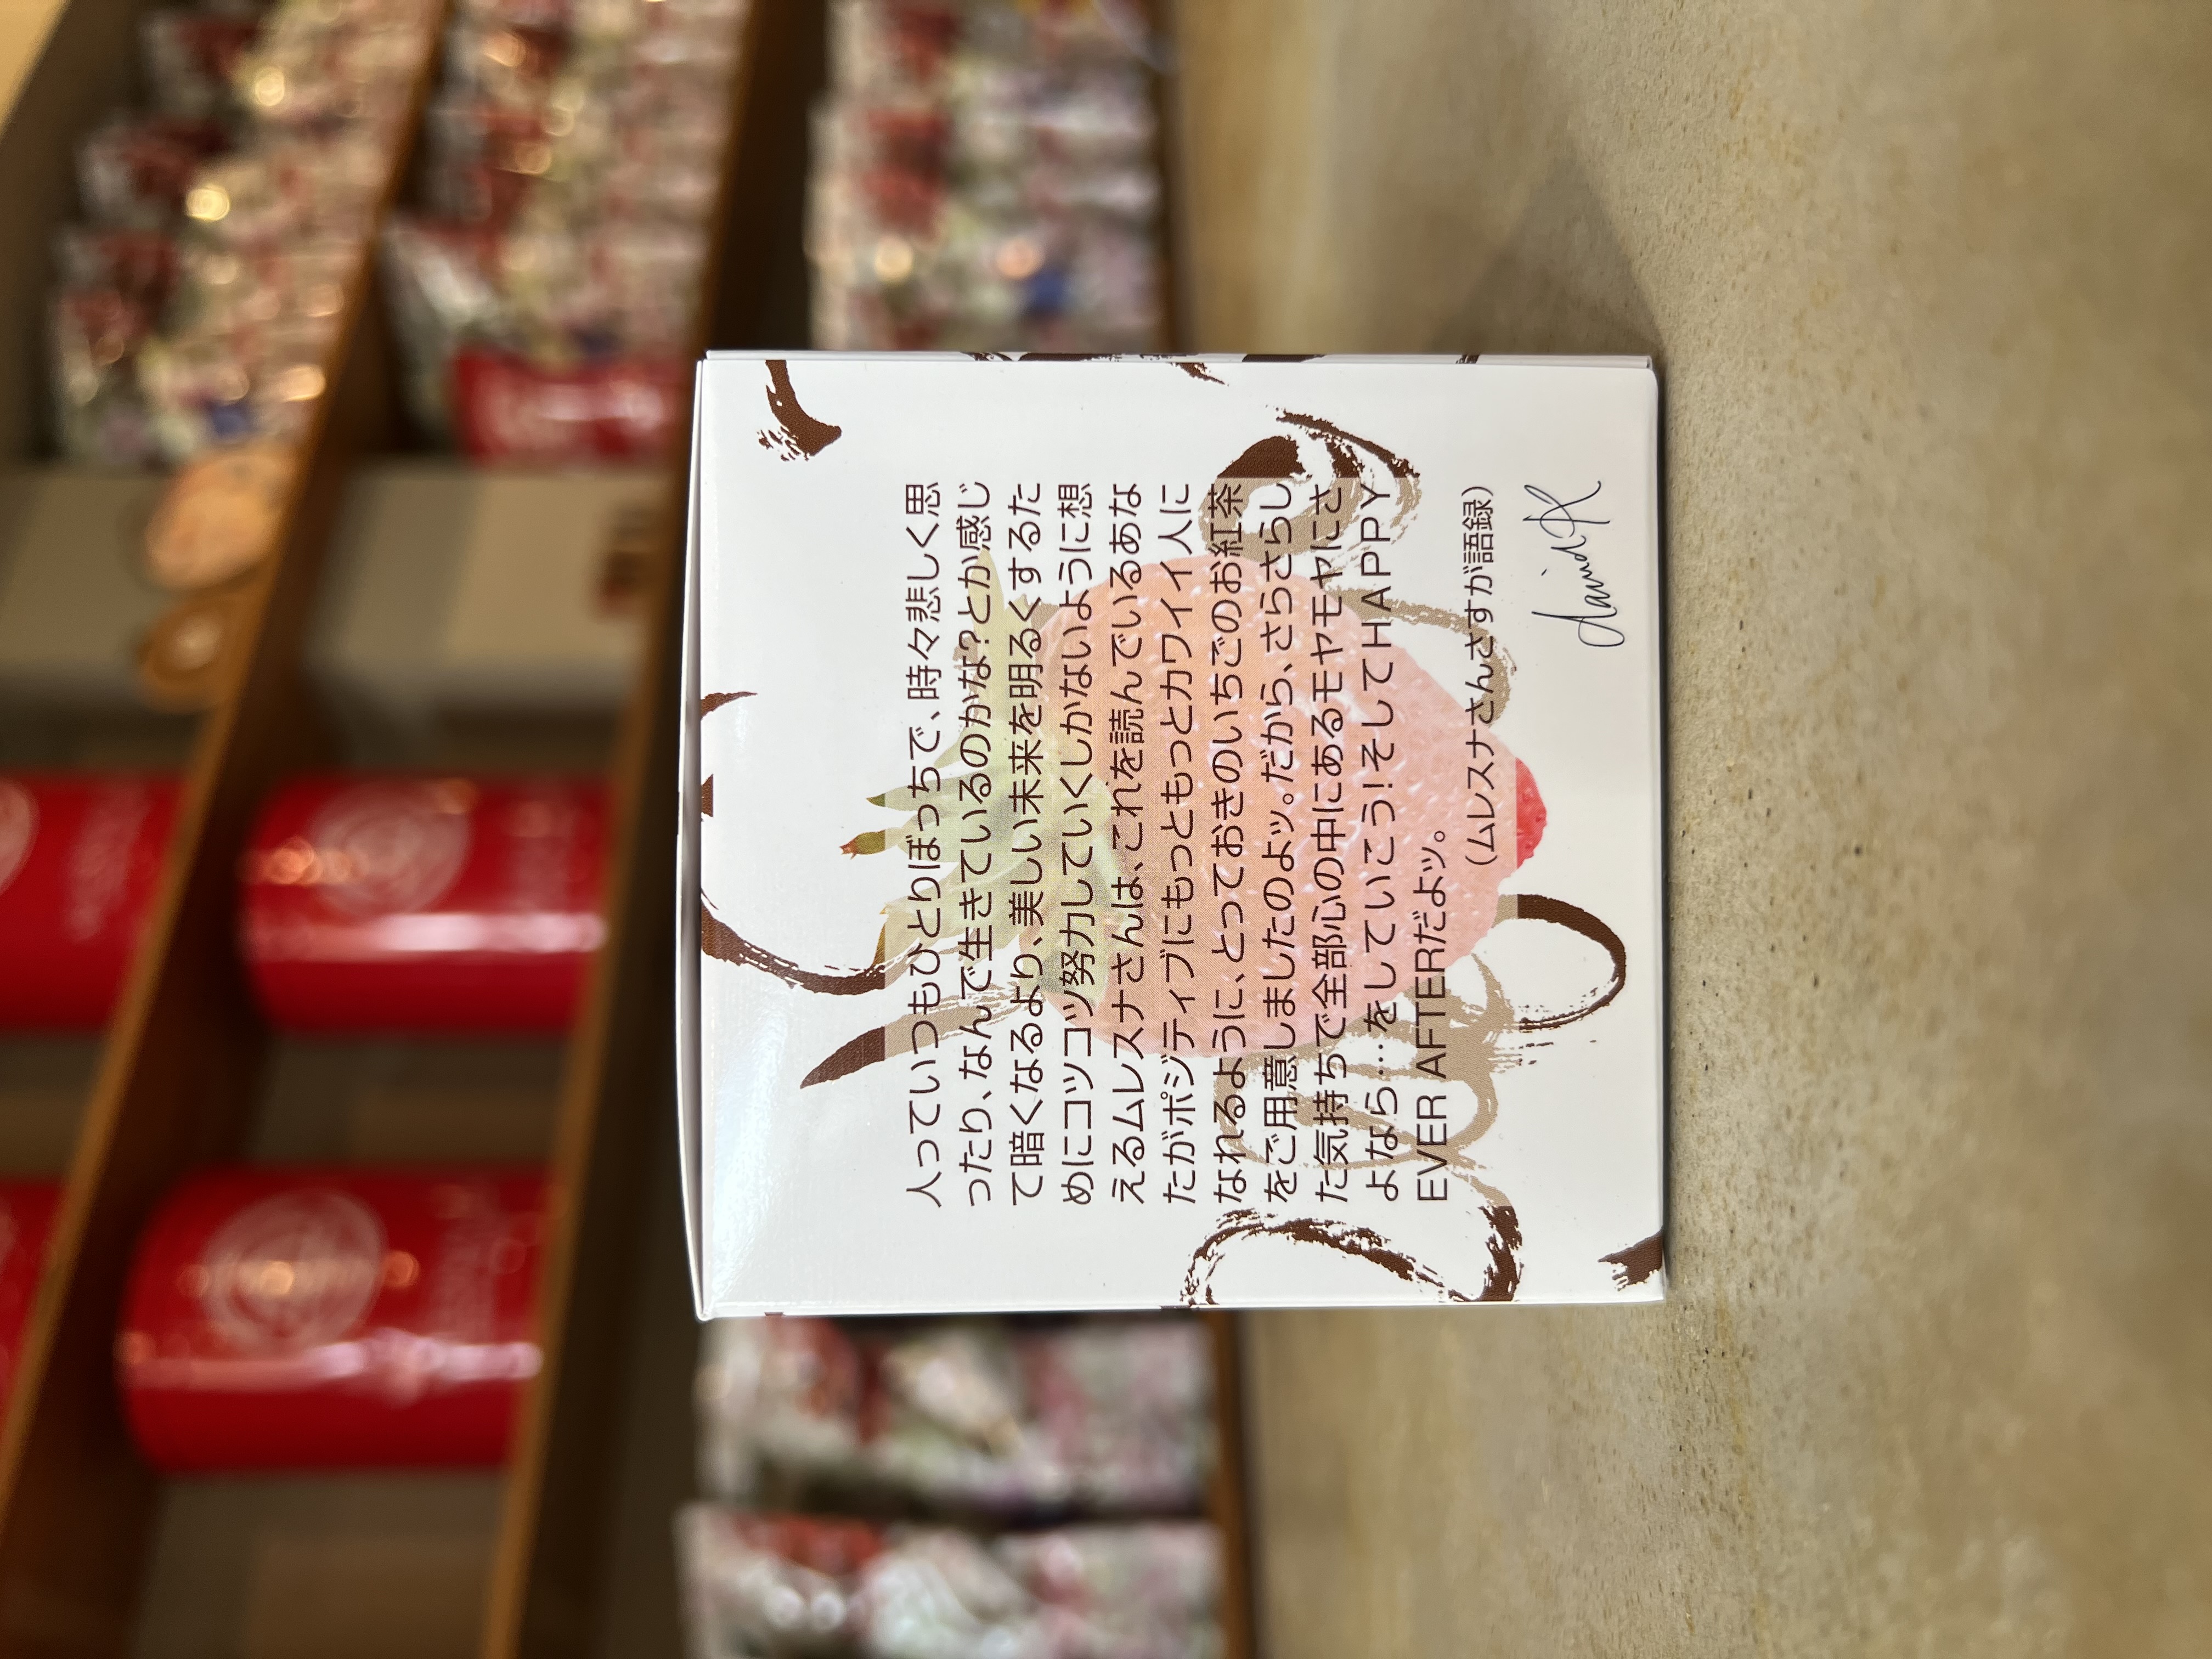 人っていつもひとりぼっちで、時々悲しく思
ったり、なんで生きているのかな?とか感じ
て暗くなるより、美しい未来を明るくするた
めにコツコツ努力していくしかないように想
えるムレスナさんは、これを読んでいるあな
たがポジティブにもっともっとカワイイ人に
なれるように、とっておきのいちごのお紅茶
をご用意しましたのよッ。だから、さらさらし
た気持ちで全部心の中にあるモヤモヤにさ
よなら…をしていこう!そしてHAPPY
EVER AFTERだよッ。
(ムレスナさんさすが語録)